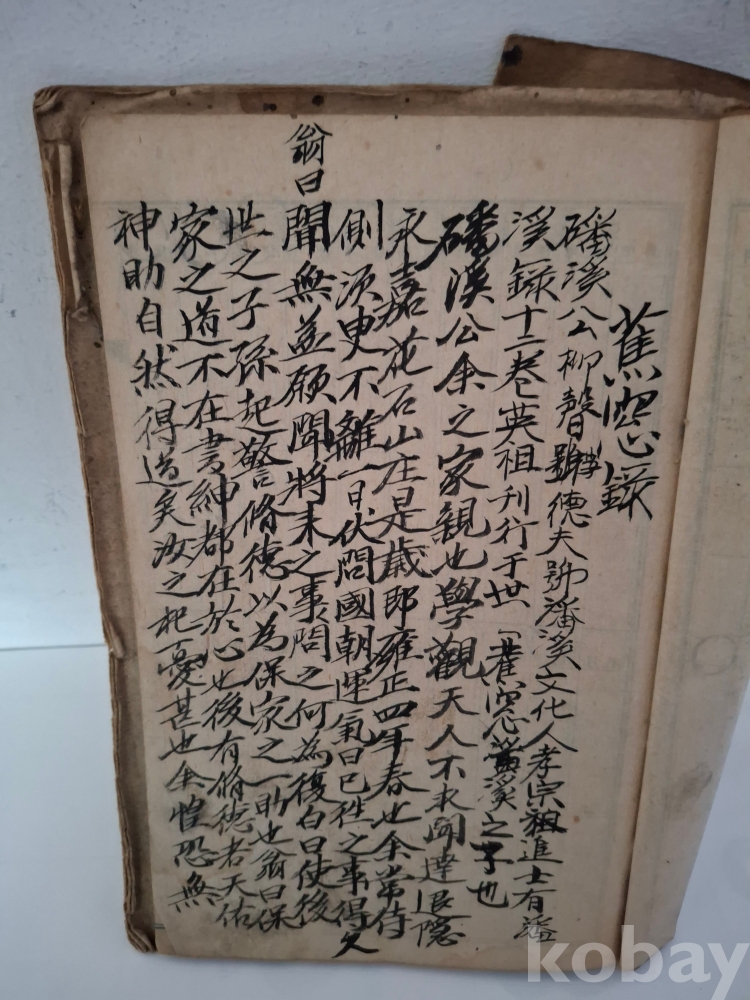 蕉窓錄
磻溪公柳聲 德夫號磻溪文化人孝宗祖進士有磻
溪錄十二卷英祖刊行于世 蕉窓 溪之 也
磻溪公余之家親也學觀天人不求聞達退隱
永嘉花石山庄是歲卽雍正四年春也余常侍
側須臾不離一日伏問國朝運氣曰已往之事得
聞無益願聞將來之事問之何為復白曰使後
世之子孫起警脩德以為保家之一助也翁曰保
家之道不在書紳都在於心也後有脩德者天佑
神助自然得道矣汝之杞憂甚也余惶恐無
翁曰
kobay